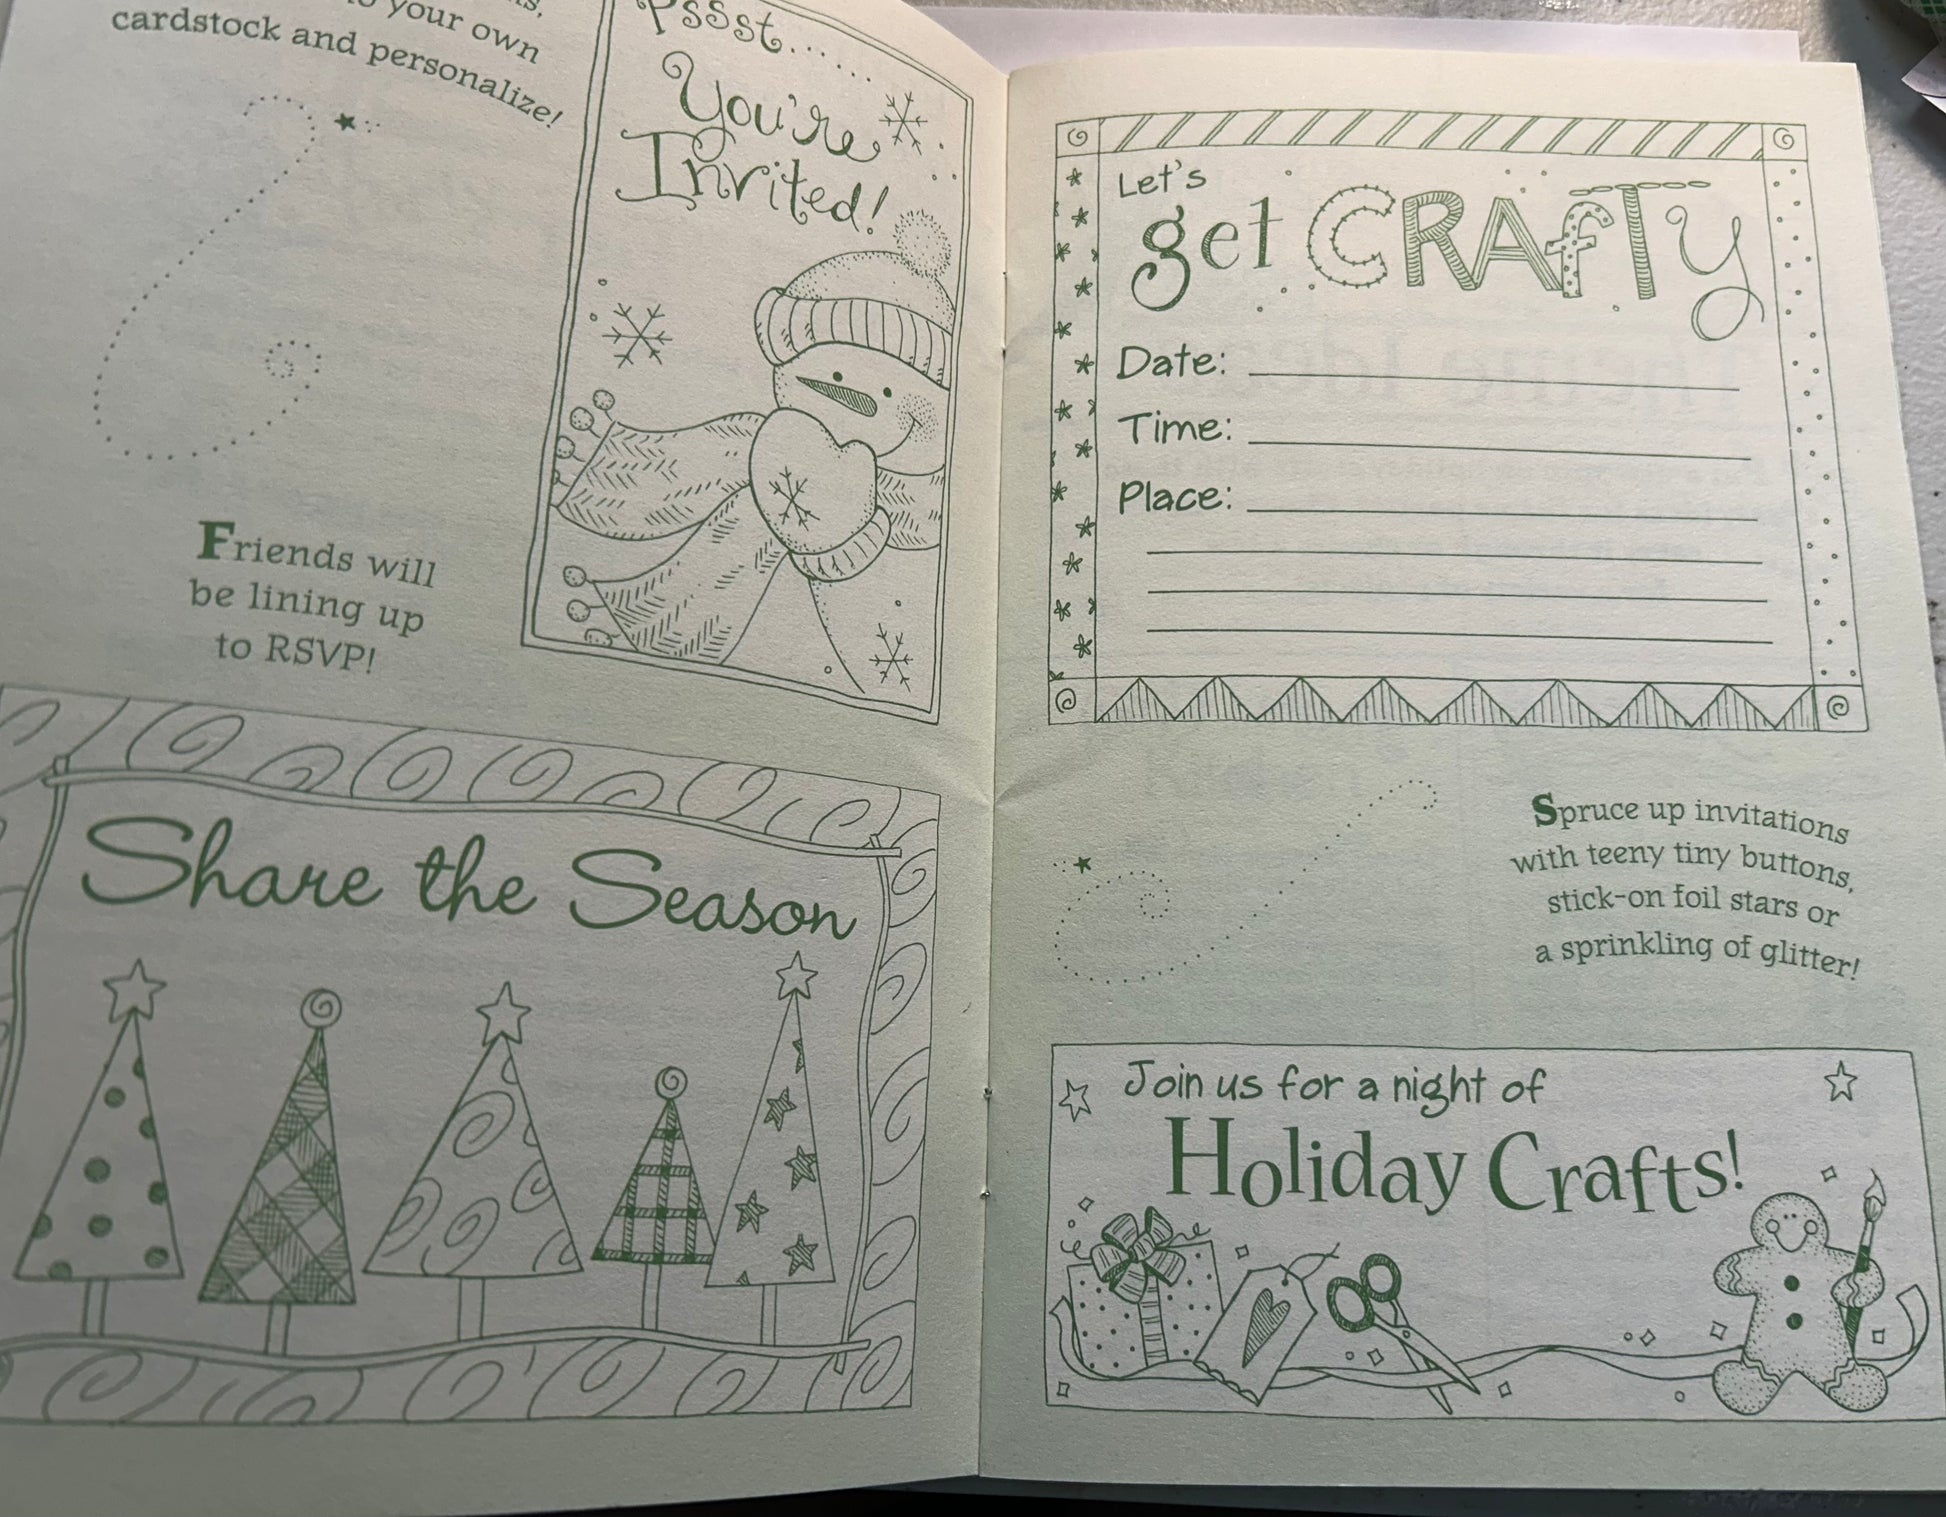 your own
cardstock and personalize!
Pssst......
You're
Invited!
Friends will
be lining up
to RSVP!
Share the Season
Let's
get CRAfTy
Date:
Time:
Place:
Spruce up invitations
with teeny tiny buttons,
stick-on foil stars or
a sprinkling of glitter!
Join us for a night of
Holiday Crafts!